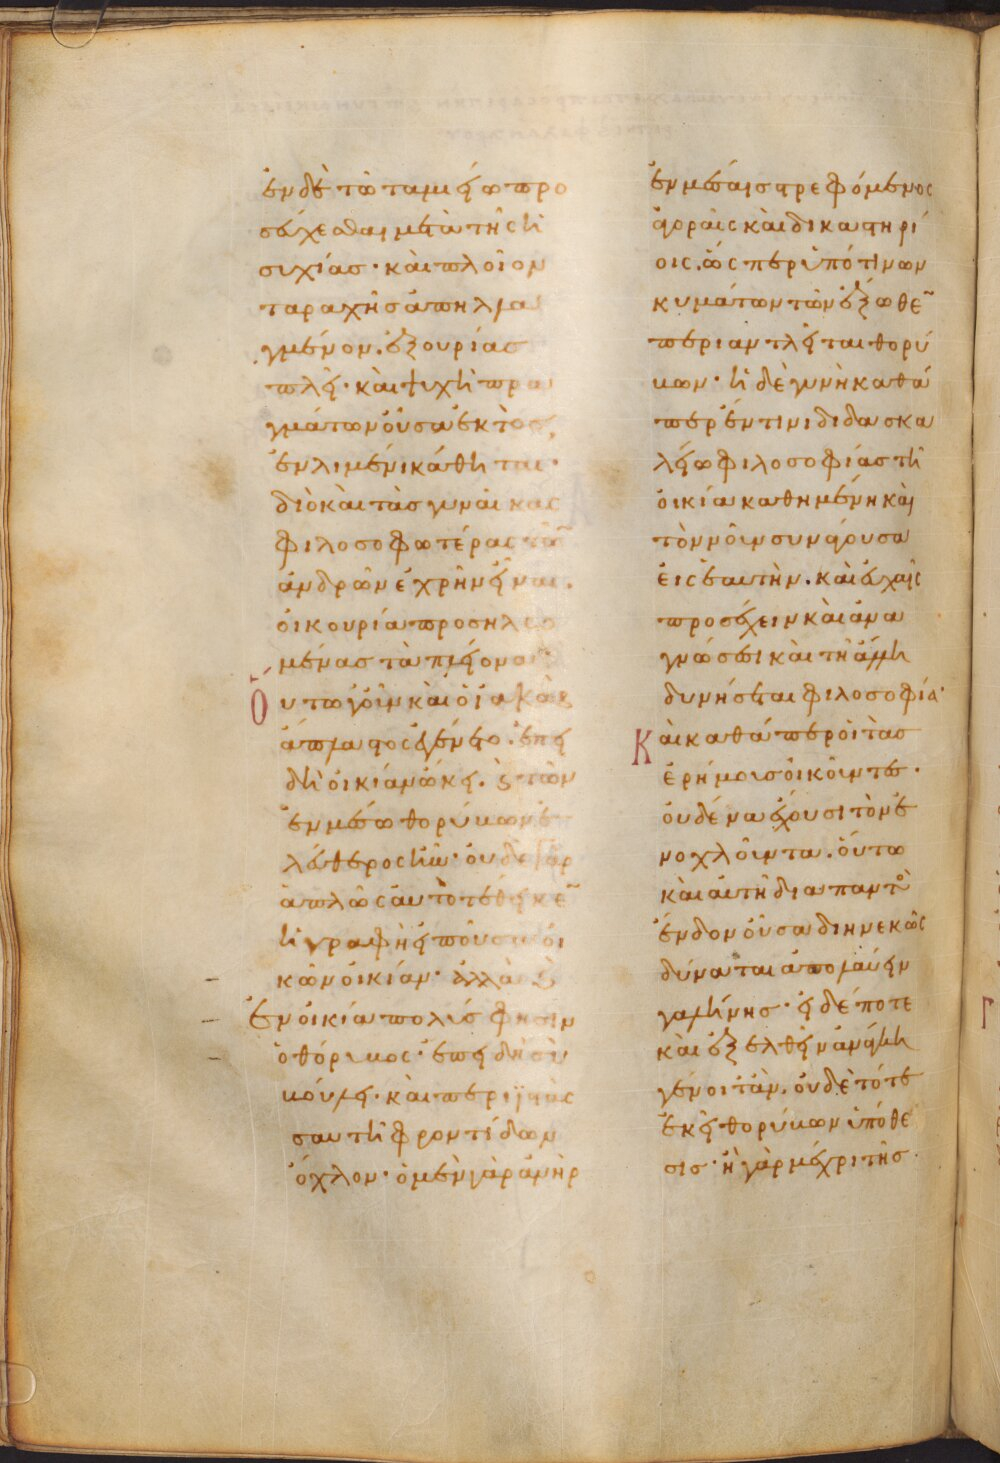 ἐν δὲ τῷ ταμιείῳ προ
σεύχεσθαι μετὰ τῆς ἡ
συχίας· καὶ πλοῖον
ταραχῆς ἀπηλλα
γμένον. ἐξ οὐρίας
πλεῖ· καὶ ψυχὴ πρα
γμάτων οὖσα ἐκτὸς,
ἐν λιμένι κάθηται·
διὸ καὶ τὰς γυναῖκας
φιλοσοφωτέρας τῶν
ἀνδρῶν ἐχρῆν εἶναι.
οἰκουρία προσηλω
μένας τὰ πλείονα·
Οὕτω γοῦν καὶ ὁ ἰακὼβ
ἄπλαστος ἐγένετο. ἐπει
δὴ οἰκίαν ᾤκει. καὶ τῶν
ἐν μέσω θορύβων ἐ
λεύθερος ἦν· οὐδὲ γὰρ
ἁπλῶς αὐτὸ τέθεικεν
ἡ γραφὴ εἰποῦσα οἰ
κῶν οἰκίαν· ἀλλὰ καὶ
ἐν οἰκία πολύς φησιν
ὁ θόρυβος· ἐπειδὴ σὺ
βούλει· καὶ περιϊστᾶς
σαυτῆ φροντίδων
ὄχλον· ὁ μὲν γὰρ ἀνὴρ
ἐν μέσαις στρεφόμενος
ἀγοραῖς καὶ δικαστηρί
οις. ὥσπερ ὑπό τινων
κυμάτων τῶν ἔξωθεν
περιαντλεῖται θορύ
βων· ἡ δὲ γυνὴ καθά
περ ἐν τινι διδασκα
λείω φιλοσοφίας τῆ
οἰκία καθημένη καὶ
τὸν νοῦν συνάγουσα
εἰς ἑαυτὴν. καὶ εὐχαῖς
προσέχειν καὶ ἀνα
γνώσεσι καὶ τῆ ἄλλη
δυνήσεται φιλοσοφία·
Καὶ καθάπερ οἱ τὰς
ἐρήμους οἰκοῦντες·
οὐδένα ἔχουσι τὸν ἐ
νοχλοῦντα. οὕτω
καὶ αὐτὴ διαπαντὸς
ἔνδον οὖσα διηνεκῶς
δύναται ἀπολαύειν
γαλήνης· εἰ δέ ποτε
καὶ ἐξελθεῖν ἀνάγκη
γένοιτ' ἄν. οὐδὲ τότε
ἐκεῖ θορύβων ὑπόθε
σις· ἢ γὰρ μέχρι τῆς